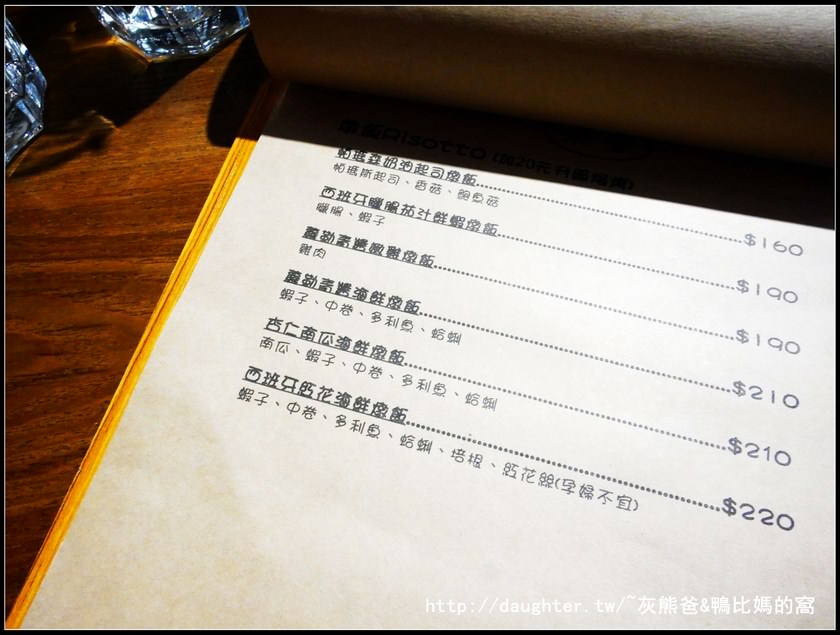 Risotto (加20元升級焗烤)
帕瑪森奶油起司燉飯 $160
帕瑪斯起司、香菇、鮑魚菇
西班牙臘腸茄汁鮮蝦燉飯 $190
臘腸、蝦子
蘿勒青醬嫩雞燉飯 $190
雞肉
蘿勒青醬海鮮燉飯 $210
蝦子、中卷、多利魚、蛤蜊
杏仁南瓜海鮮燉飯 $210
南瓜、蝦子、中卷、多利魚、蛤蜊
西班牙紅花海鮮燉飯 $220
蝦子、中卷、多利魚、蛤蜊、培根、紅花絲(孕婦不宜)
http://daughter.tw/~灰熊爸&鴨比媽的窩